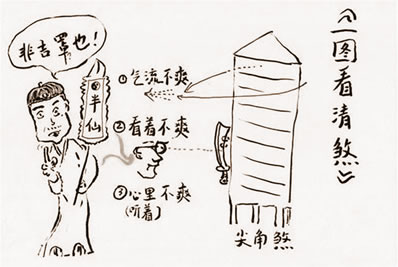 《一图看清煞》
非吉罩也！
半仙
①气流不爽
②看着不爽
③心里不爽
(听着)
尖角煞